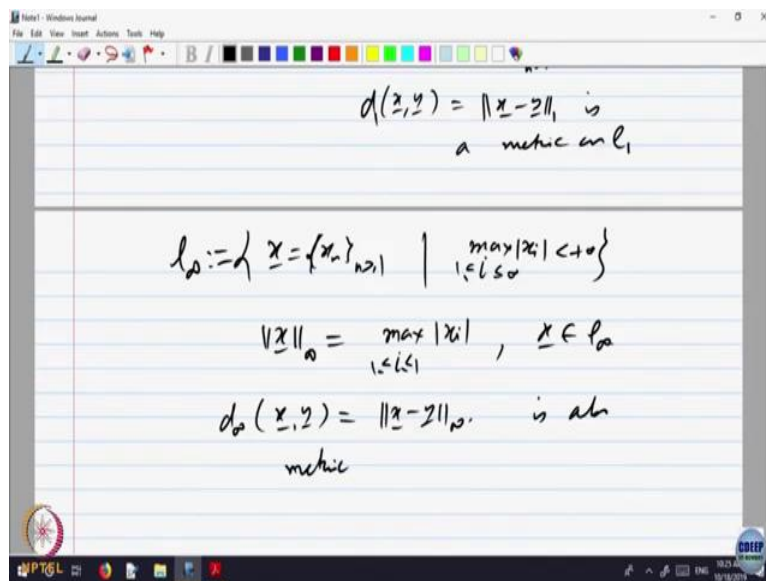 Note1 - Windows Journal
File Edit View Insert Actions Tools Help
d(x, y) = ||x - y||₁ is
a metric on l₁
l∞ := { x = {xₙ}ₙ≥₁ | max |xᵢ| < +∞ }
1 ≤ i ≤ ∞
||x||∞ = max |xᵢ| , x ∈ l∞
1 ≤ i ≤ 1
d∞(x, y) = ||x - y||∞. is als
metric
NPTEL
ENG
10/18/2019
CDEEP